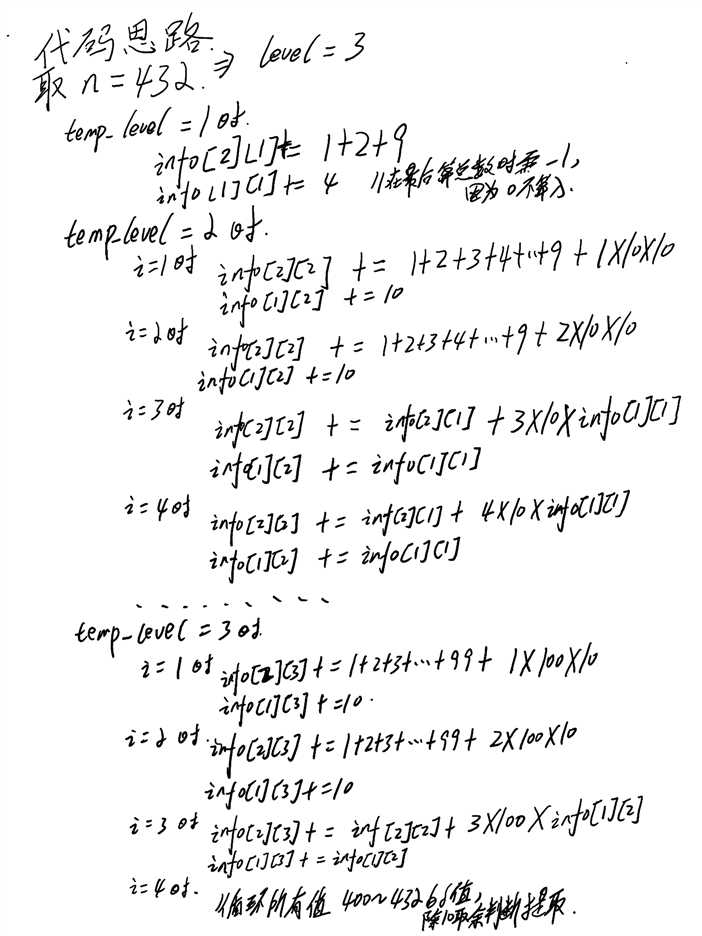 代码思路.
取 n=432. ⇒ level = 3
temp_level = 1 时.
info[2][1] += 1+2+9
info[1][1] += 4 //在最后算总数时要 -1,
因为 0 不算入.
temp_level = 2 时.
i=1时 info[2][2] += 1+2+3+4+…+9 + 1X10X10
info[1][2] += 10
i=2时 info[2][2] += 1+2+3+4+…+9 + 2X10X10
info[1][2] +=10
i=3时 info[2][2] += info[2][1] + 3X10Xinfo[1][1]
info[1][2] += info[1][1]
i=4时 info[2][2] += inf[2][1] + 4X10Xinfo[1][1]
info[1][2] += info[1][1]
. . . . . . . . .
temp_level = 3时.
i=1时 info[2][3] += 1+2+3+…+99 + 1X100X10
info[1][3] +=10.
i=2时. info[2][3] += 1+2+3+…+99+ 2X100X10
info[1][3]+=10
i=3时 info[2][3]+= inf[2][2]+ 3X100Xinfo[1][2]
info[1][3]+=info[1][2]
i=4时. //循环所有值 400~432的值,
除10取余判断提取.